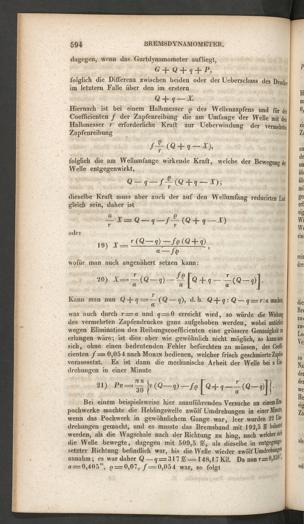 594 BREMSDYNAMOMETER.
dagegen, wenn das Gurtdynamometer aufliegt,
G + Q + q + P,
folglich die Differenz zwischen beiden oder der Ueberschuss des Drucks
im letztern Falle über den im erstern
Q + q — X.
Hiernach ist bei einem Halbmesser ϱ des Wellenzapfens und für den
Coefficienten f der Zapfenreibung die am Umfange der Welle mit dem
Halbmesser r erforderliche Kraft zur Ueberwindung der vermehrten
Zapfenreibung
f ϱ/r (Q + q — X),
folglich die am Wellumfange wirkende Kraft, welche der Bewegung der
Welle entgegenwirkt,
Q — q — f ϱ/r (Q + q — X);
dieselbe Kraft muss aber auch der auf den Wellumfang reducirten Last
gleich sein, daher ist
a/r X = Q — q — f ϱ/r (Q + q — X)
oder
19) X = r (Q — q) — fϱ (Q + q) / a — fϱ,
wofür man auch angenähert setzen kann:
20) X = r/a (Q — q) — fϱ/a [Q + q — r/a (Q — q)].
Kann man nun Q + q = r/a (Q — q), d. h. Q + q : Q — q = r : a machen,
was auch durch r = a und q = 0 erreicht wird, so würde die Wirkung
des vermehrten Zapfendruckes ganz aufgehoben werden, wobei natürlich
wegen Elimination des Reibungscoefficienten eine grössere Genauigkeit zu
erlangen wäre; ist dies aber wie gewöhnlich nicht möglich, so kann man
sich, ohne einen bedeutenden Fehler befürchten zu müssen, des Coefficienten
f = 0,054 nach MORIN bedienen, welcher frisch geschmierte Zapfen
voraussetzt. Es ist dann die mechanische Arbeit der Welle bei n Umdrehungen
in einer Minute
21) Pv = πn/30 {r (Q — q) — fϱ [Q + q — r/a (Q — q)]}.
Bei einem beispielsweise hier anzuführenden Versuche an einem Erzpochwerke
machte die Heblingswelle zwölf Umdrehungen in einer Minute
wenn das Pochwerk in gewöhnlichem Gange war, leer wurden
drehungen gemacht, und es musste das Bremsband mit 192,5 ℔ belastet
werden, als die Wagschale nach der Richtung zu hing, nach welcher sich
die Welle bewegte, dagegen mit 509,5 ℔, als dieselbe in entgegengesetzter
Richtung befindlich war, bis die Welle wieder zwölf Umdrehungen
annahm; es war daher Q — q = 317 ℔ = 148,17 Kil. Da nun
a = 0,405m, ϱ = 0,07, f = 0,054 war, so folgt